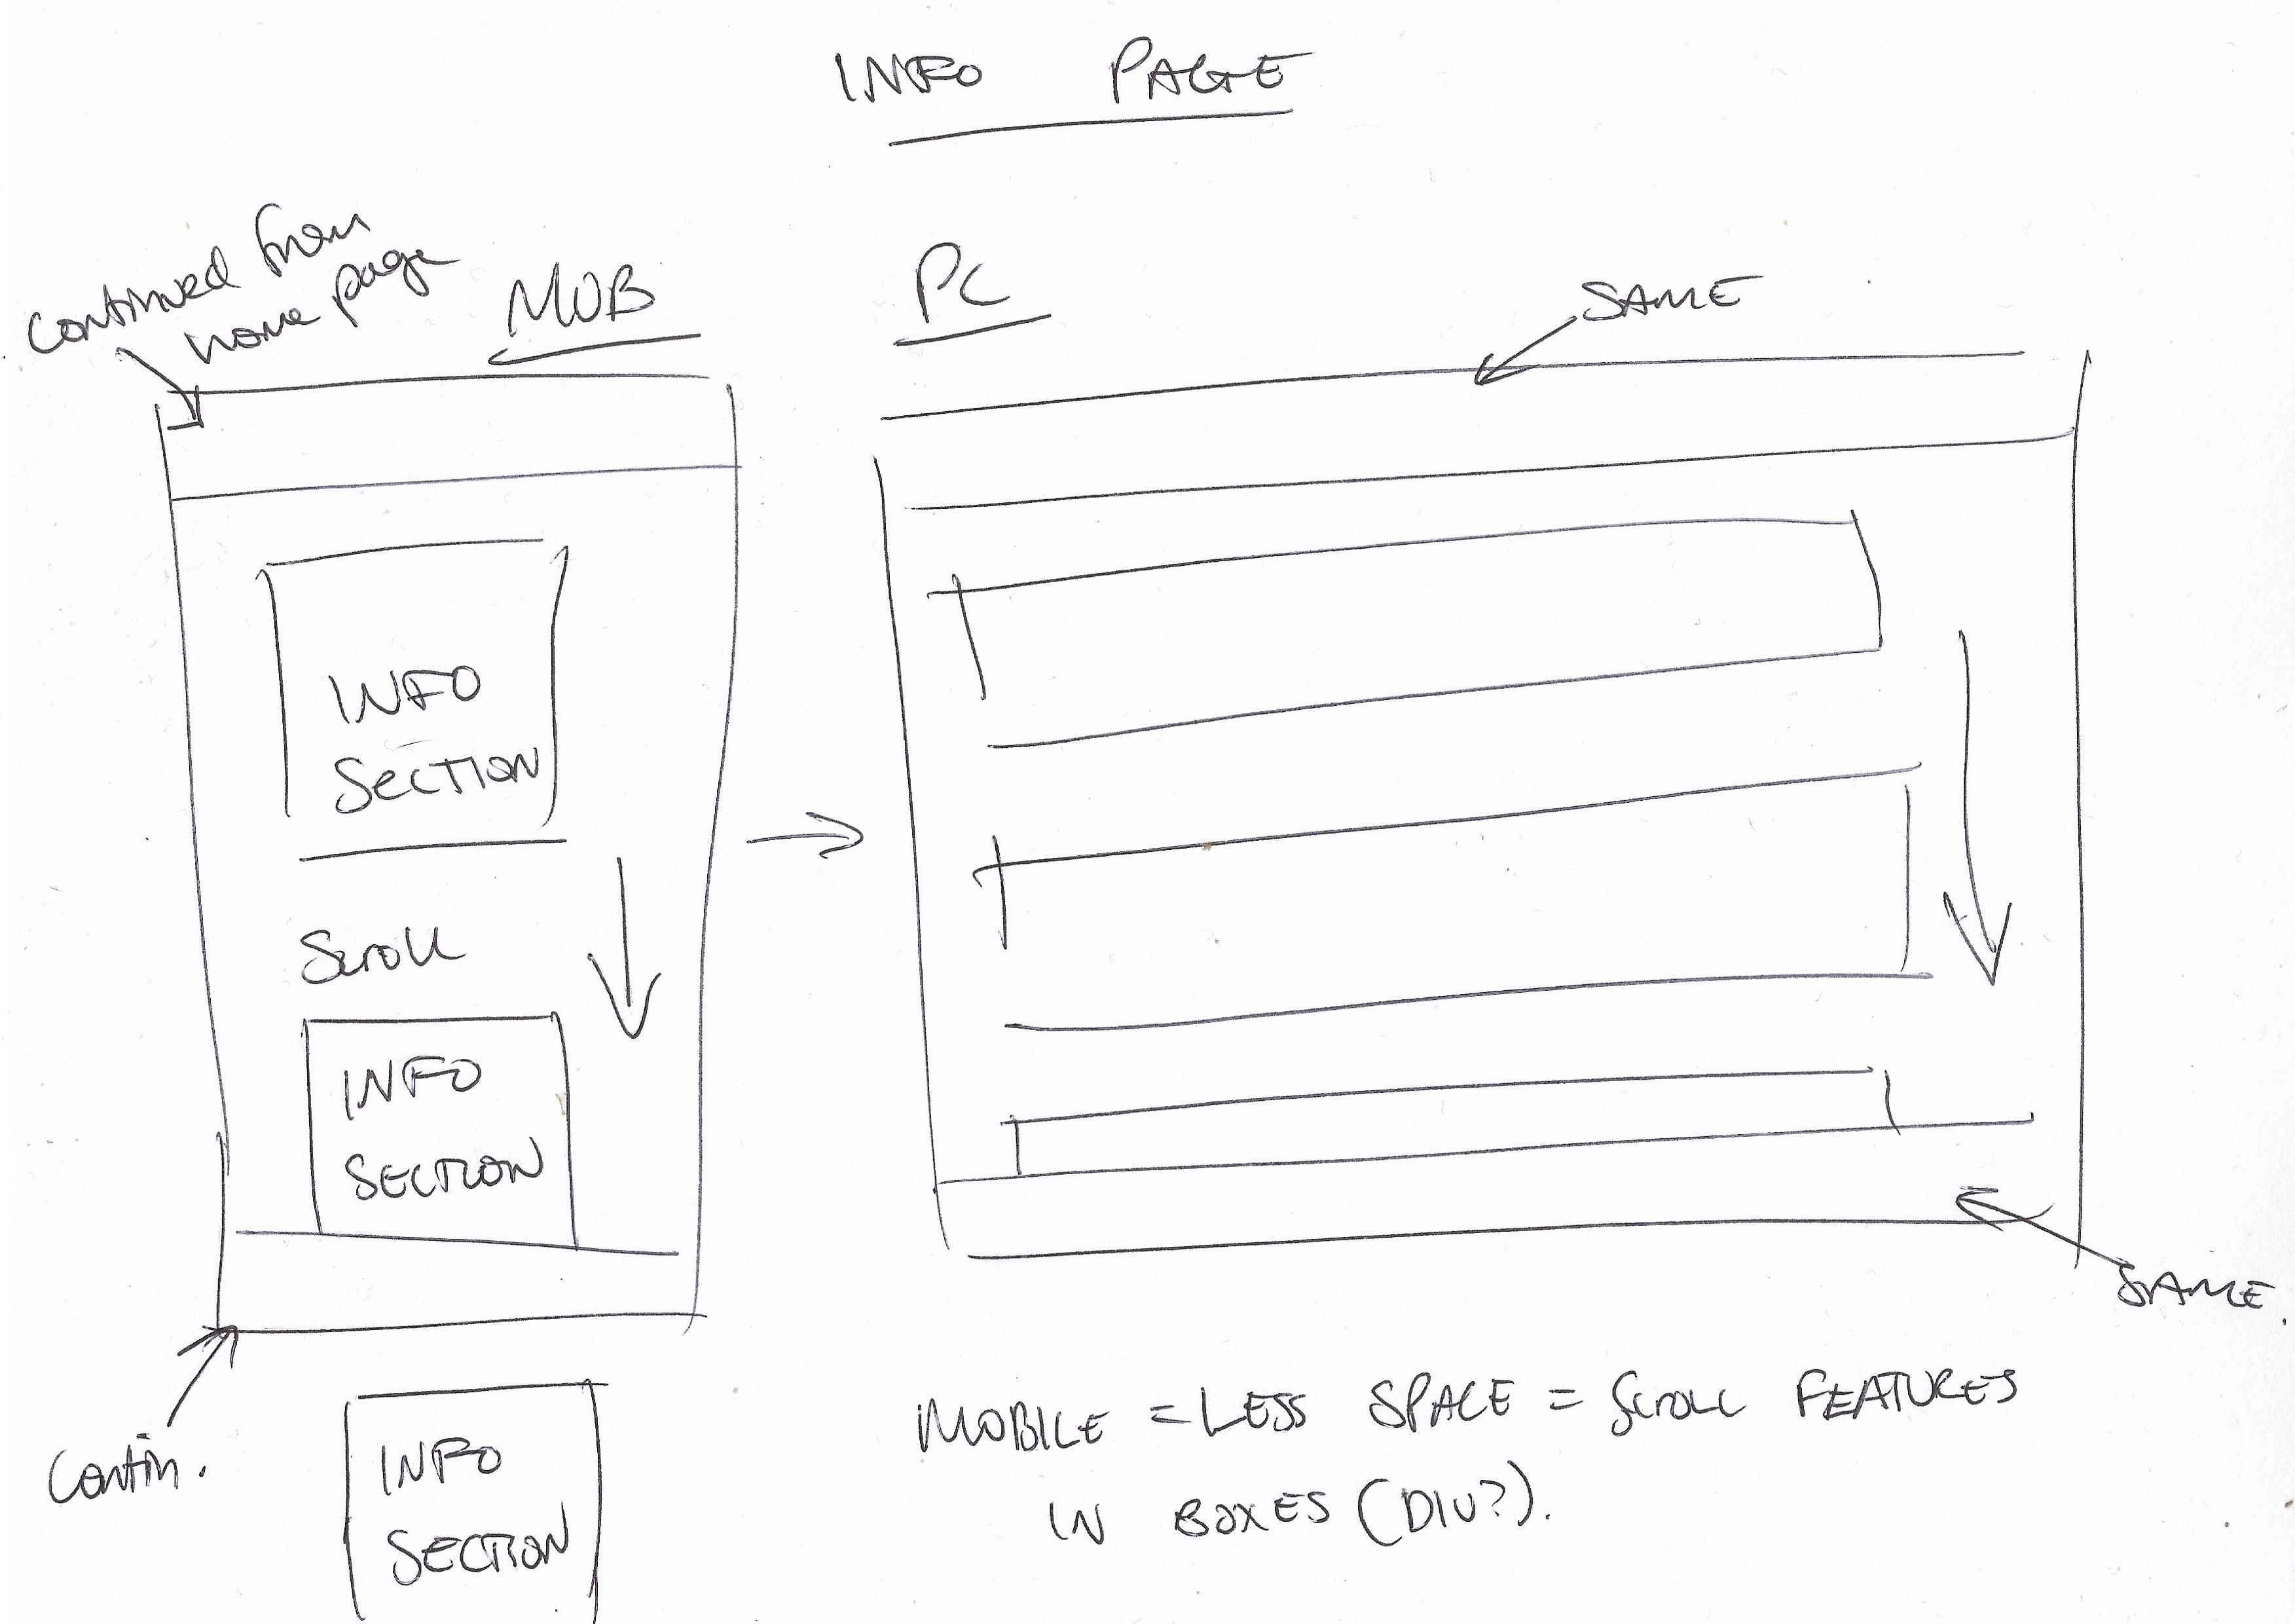 INFO PAGE
continued from
home page
MOB
PC
SAME
INFO
SECTION
Scroll
INFO
SECTION
SAME.
contin.
INFO
SECTION
MOBILE = LESS SPACE = SCROLL FEATURES
IN BOXES (DIV?).